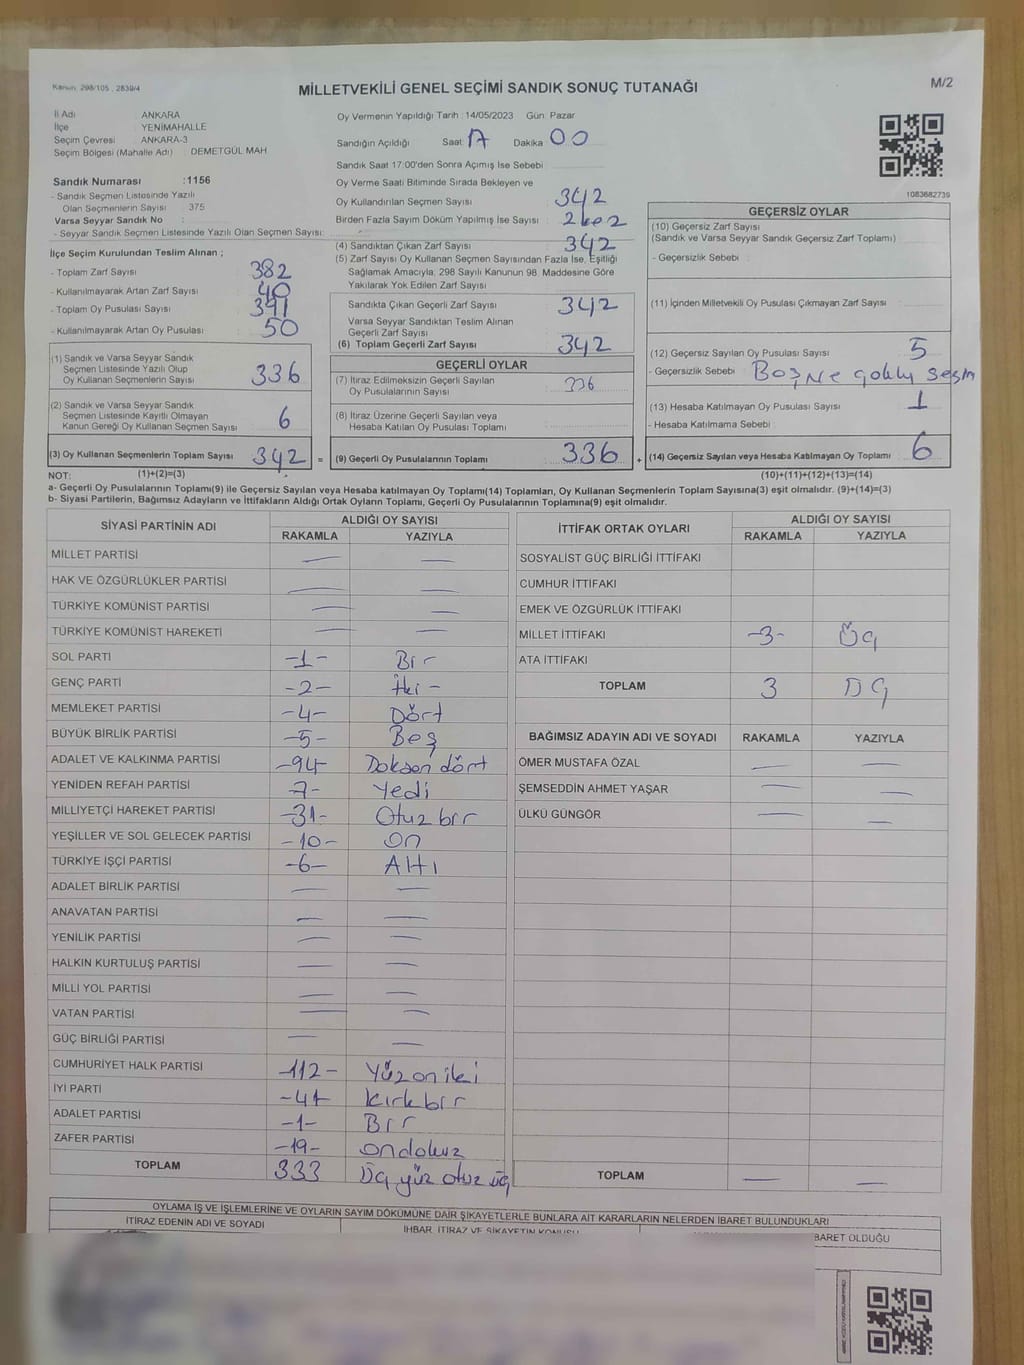 Kanun: 298/105, 2839/4
MİLLETVEKİLİ GENEL SEÇİMİ SANDIK SONUÇ TUTANAĞI
M/2
İl Adı ANKARA
İlçe YENİMAHALLE
Seçim Çevresi ANKARA-3
Seçim Bölgesi (Mahalle Adı) DEMETGÜL MAH.
Sandık Numarası :1156
- Sandık Seçmen Listesinde Yazılı
Olan Seçmenlerin Sayısı : 375
Varsa Seyyar Sandık No :
- Seyyar Sandık Seçmen Listesinde Yazılı Olan Seçmen Sayısı:
Oy Vermenin Yapıldığı Tarih :14/05/2023 Gün: Pazar
Sandığın Açıldığı Saat: 17 Dakika: 00
Sandık Saat 17:00'den Sonra Açımış İse Sebebi :
Oy Verme Saati Bitiminde Sırada Bekleyen ve
Oy Kullandırılan Seçmen Sayısı : 342
Birden Fazla Sayım Döküm Yapılmış İse Sayısı : 2 kez
1083682739
İlçe Seçim Kurulundan Teslim Alınan ;
- Toplam Zarf Sayısı : 382
- Kullanılmayarak Artan Zarf Sayısı : 40
- Toplam Oy Pusulası Sayısı : 391
- Kullanılmayarak Artan Oy Pusulası : 50
(1) Sandık ve Varsa Seyyar Sandık
Seçmen Listesinde Yazılı Olup
Oy Kullanan Seçmenlerin Sayısı : 336
(2) Sandık ve Varsa Seyyar Sandık
Seçmen Listesinde Kayıtlı Olmayan
Kanun Gereği Oy Kullanan Seçmen Sayısı : 6
(3) Oy Kullanan Seçmenlerin Toplam Sayısı : 342 =
(1)+(2)=(3)
(4) Sandıktan Çıkan Zarf Sayısı : 342
(5) Zarf Sayısı Oy Kullanan Seçmen Sayısından Fazla İse, Eşitliği
Sağlamak Amacıyla, 298 Sayılı Kanunun 98. Maddesine Göre
Yakılarak Yok Edilen Zarf Sayısı :
Sandıkta Çıkan Geçerli Zarf Sayısı : 342
Varsa Seyyar Sandıktan Teslim Alınan
Geçerli Zarf Sayısı :
(6) Toplam Geçerli Zarf Sayısı : 342
GEÇERLİ OYLAR
(7) İtiraz Edilmeksizin Geçerli Sayılan
Oy Pusulasının Sayısı : 336
(8) İtiraz Üzerine Geçerli Sayılan veya
Hesaba Katılan Oy Pusulası Toplamı :
(9) Geçerli Oy Pusulalarının Toplamı : 336 +
GEÇERSİZ OYLAR
(10) Geçersiz Zarf Sayısı
(Sandık ve Varsa Seyyar Sandık Geçersiz Zarf Toplamı) :
- Geçersizlik Sebebi :
(11) İçinden Milletvekili Oy Pusulası Çıkmayan Zarf Sayısı :
(12) Geçersiz Sayılan Oy Pusulası Sayısı : 5
- Geçersizlik Sebebi : Boş ve çoklu seçim
(13) Hesaba Katılmayan Oy Pusulası Sayısı : 1
- Hesaba Katılmama Sebebi :
(14) Geçersiz Sayılan veya Hesaba Katılmayan Oy Toplamı : 6
(10)+(11)+(12)+(13)=(14)
NOT:
a- Geçerli Oy Pusulalarının Toplamı(9) ile Geçersiz Sayılan veya Hesaba katılmayan Oy Toplamı(14) Toplamları, Oy Kullanan Seçmenlerin Toplam Sayısına(3) eşit olmalıdır. (9)+(14)=(3)
b- Siyasi Partilerin, Bağımsız Adayların ve İttifakların Aldığı Ortak Oyların Toplamı, Geçerli Oy Pusulalarının Toplamına(9) eşit olmalıdır.
SİYASİ PARTİNİN ADI ALDIĞI OY SAYISI
RAKAMLA YAZIYLA
MİLLET PARTİSİ — —
HAK VE ÖZGÜRLÜKLER PARTİSİ — —
TÜRKİYE KOMÜNİST PARTİSİ — —
TÜRKİYE KOMÜNİST HAREKETİ — —
SOL PARTİ -1- Bir
GENÇ PARTİ -2- İki -
MEMLEKET PARTİSİ -4- Dört
BÜYÜK BİRLİK PARTİSİ -5- Beş
ADALET VE KALKINMA PARTİSİ -94- Doksan dört
YENİDEN REFAH PARTİSİ -7- Yedi
MİLLİYETÇİ HAREKET PARTİSİ -31- Otuz bir
YEŞİLLER VE SOL GELECEK PARTİSİ -10- On
TÜRKİYE İŞÇİ PARTİSİ -6- Altı
ADALET BİRLİK PARTİSİ — —
ANAVATAN PARTİSİ — —
YENİLİK PARTİSİ — —
HALKIN KURTULUŞ PARTİSİ — —
MİLLİ YOL PARTİSİ — —
VATAN PARTİSİ — —
GÜÇ BİRLİĞİ PARTİSİ — —
CUMHURİYET HALK PARTİSİ -112- Yüz on iki
İYİ PARTİ -41 Kırk bir
ADALET PARTİSİ -1- Bir
ZAFER PARTİSİ -19- on dokuz
TOPLAM 333 Üç yüz otuz üç
İTTİFAK ORTAK OYLARI ALDIĞI OY SAYISI
RAKAMLA YAZIYLA
SOSYALİST GÜÇ BİRLİĞİ İTTİFAKI
CUMHUR İTTİFAKI
EMEK VE ÖZGÜRLÜK İTTİFAKI
MİLLET İTTİFAKI -3- Üç
ATA İTTİFAKI
TOPLAM 3 Üç
BAĞIMSIZ ADAYIN ADI VE SOYADI RAKAMLA YAZIYLA
ÖMER MUSTAFA ÖZAL — —
ŞEMSEDDİN AHMET YAŞAR — —
ÜLKÜ GÜNGÖR — —
TOPLAM — —
OYLAMA İŞ VE İŞLEMLERİNE VE OYLARIN SAYIM DÖKÜMÜNE DAİR ŞİKAYETLERLE BUNLARA AİT KARARLARIN NELERDEN İBARET BULUNDUKLARI
İTİRAZ EDENİN ADI VE SOYADI
İHBAR, İTİRAZ VE ŞİKAYETİN KONUSU
BARET OLDUĞU